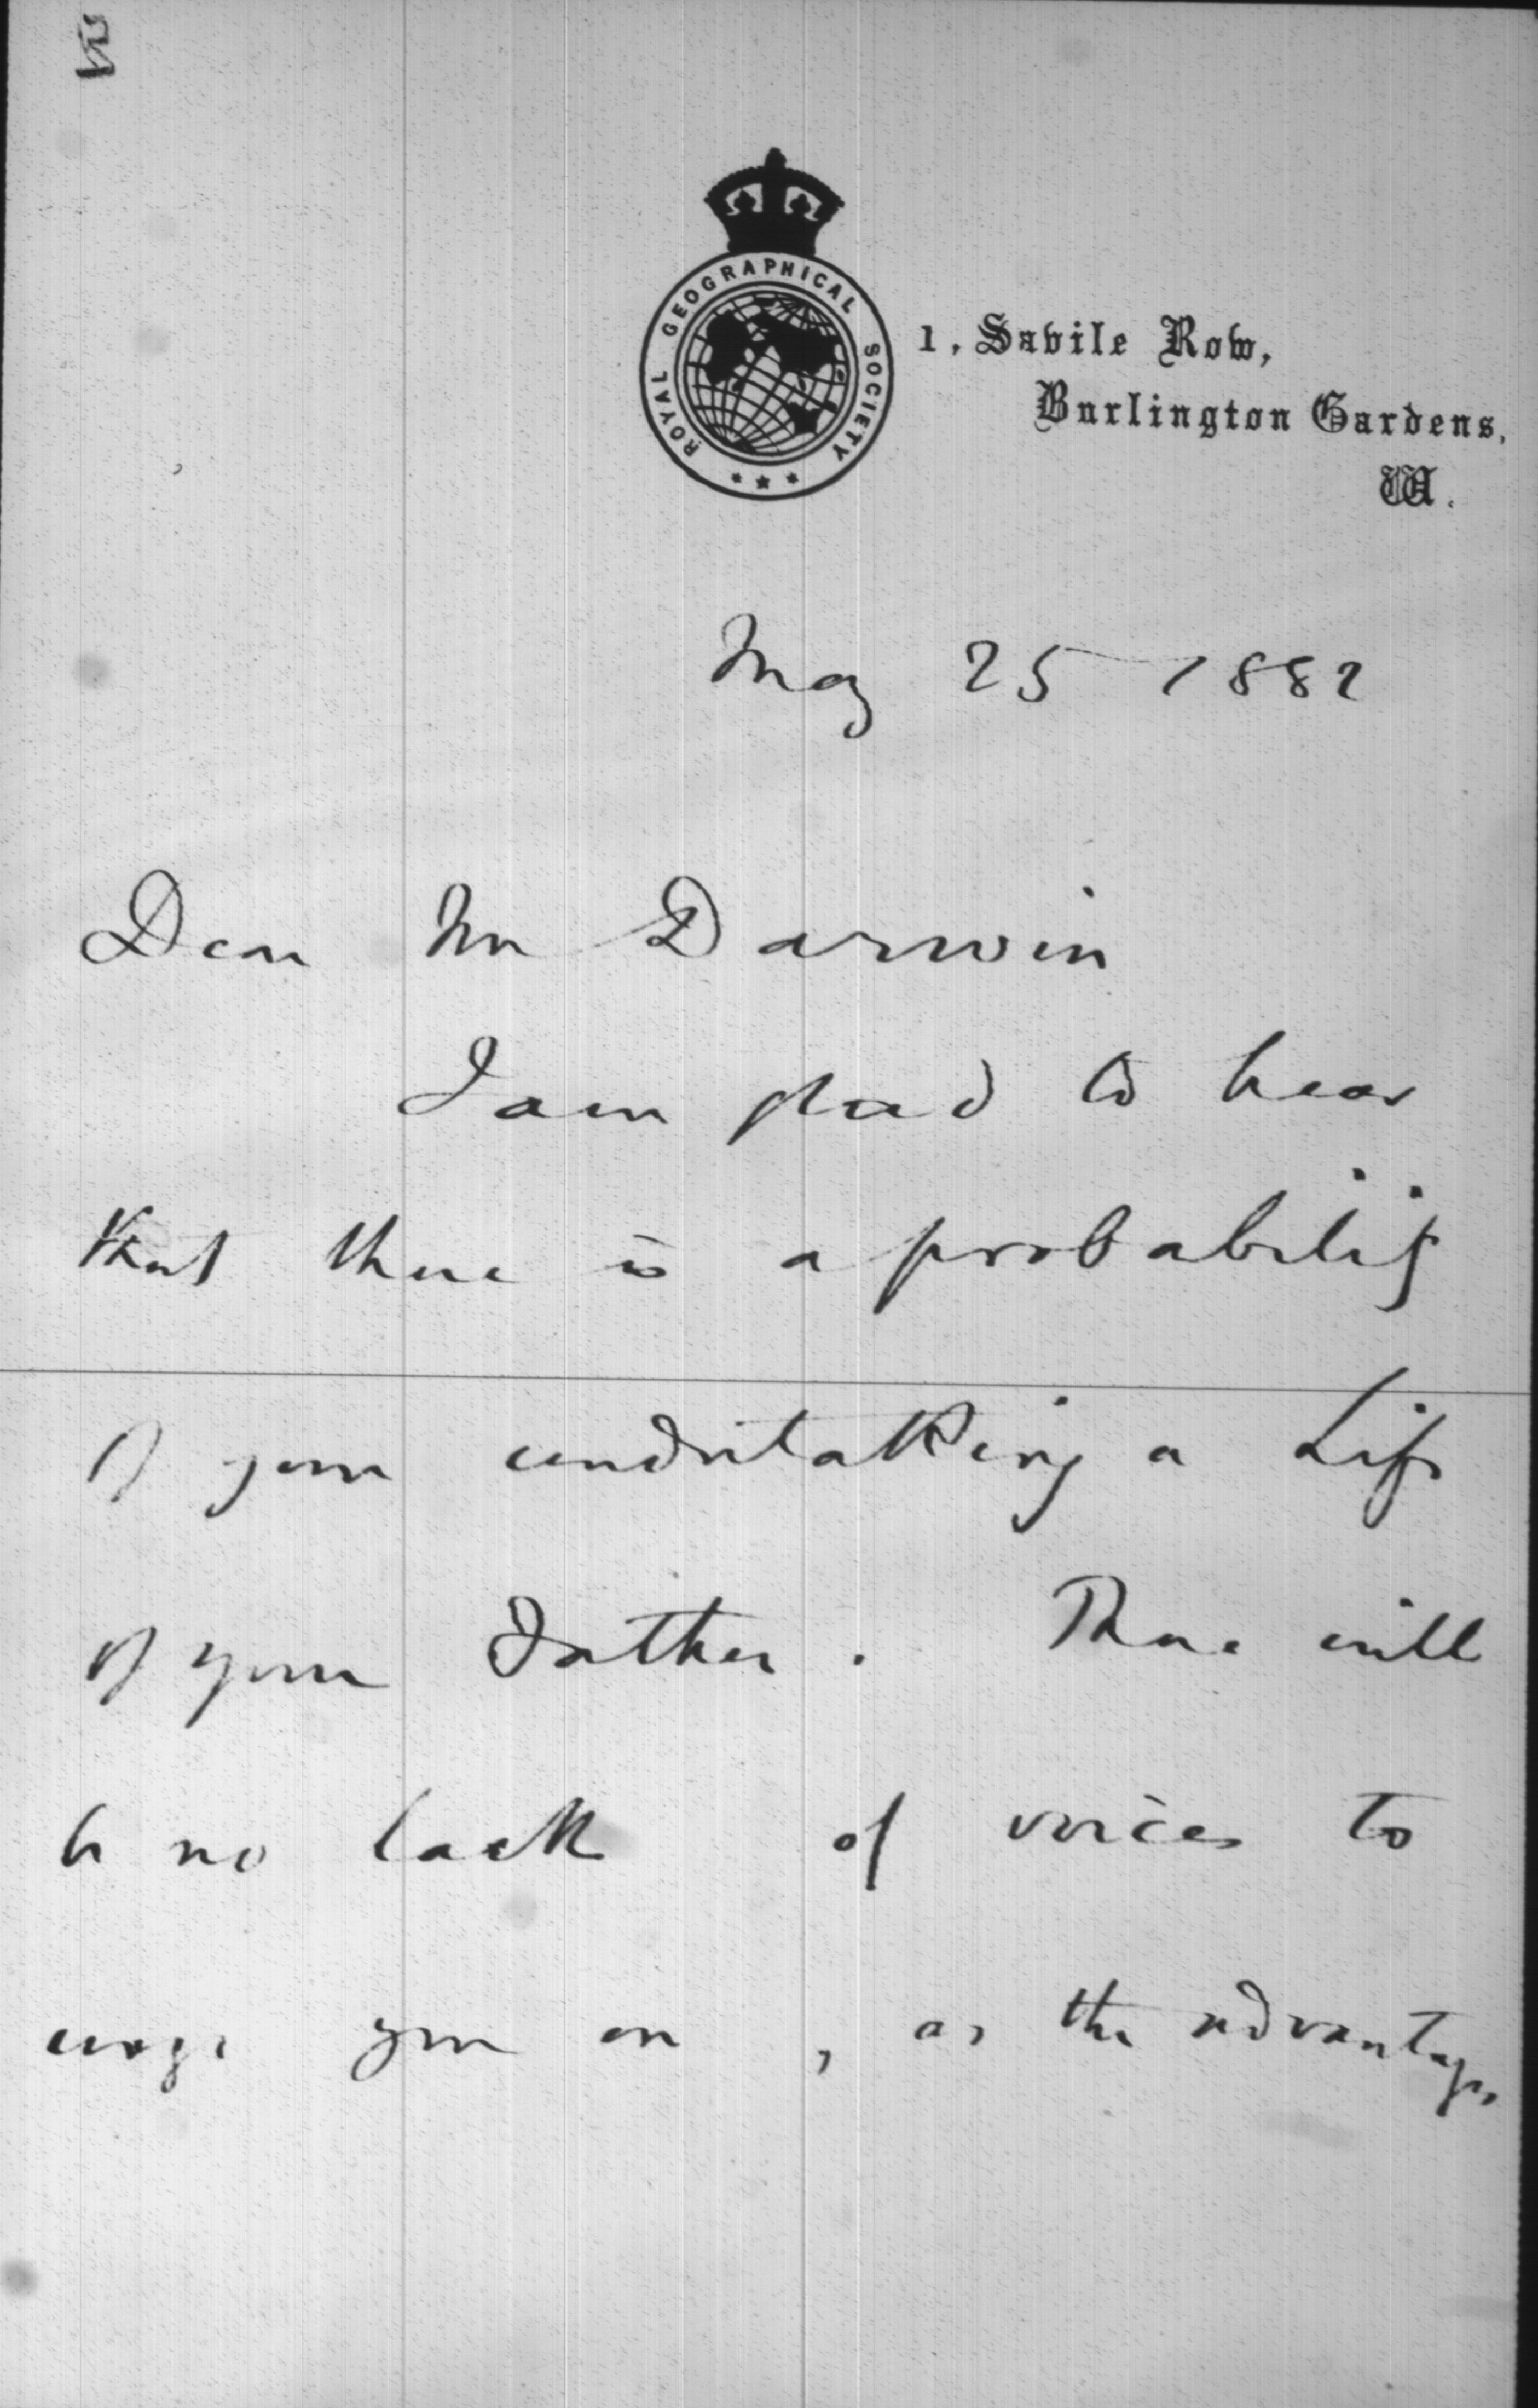 ROYAL GEOGRAPHICAL SOCIETY
1, Savile Row,
Burlington Gardens,
W.
May 25 1882
Dear Mr Darwin
I am glad to hear
that there is a probability
of your undertaking a Life
of your Father. There will
be no lack of voices to
urge you on, as the advantages